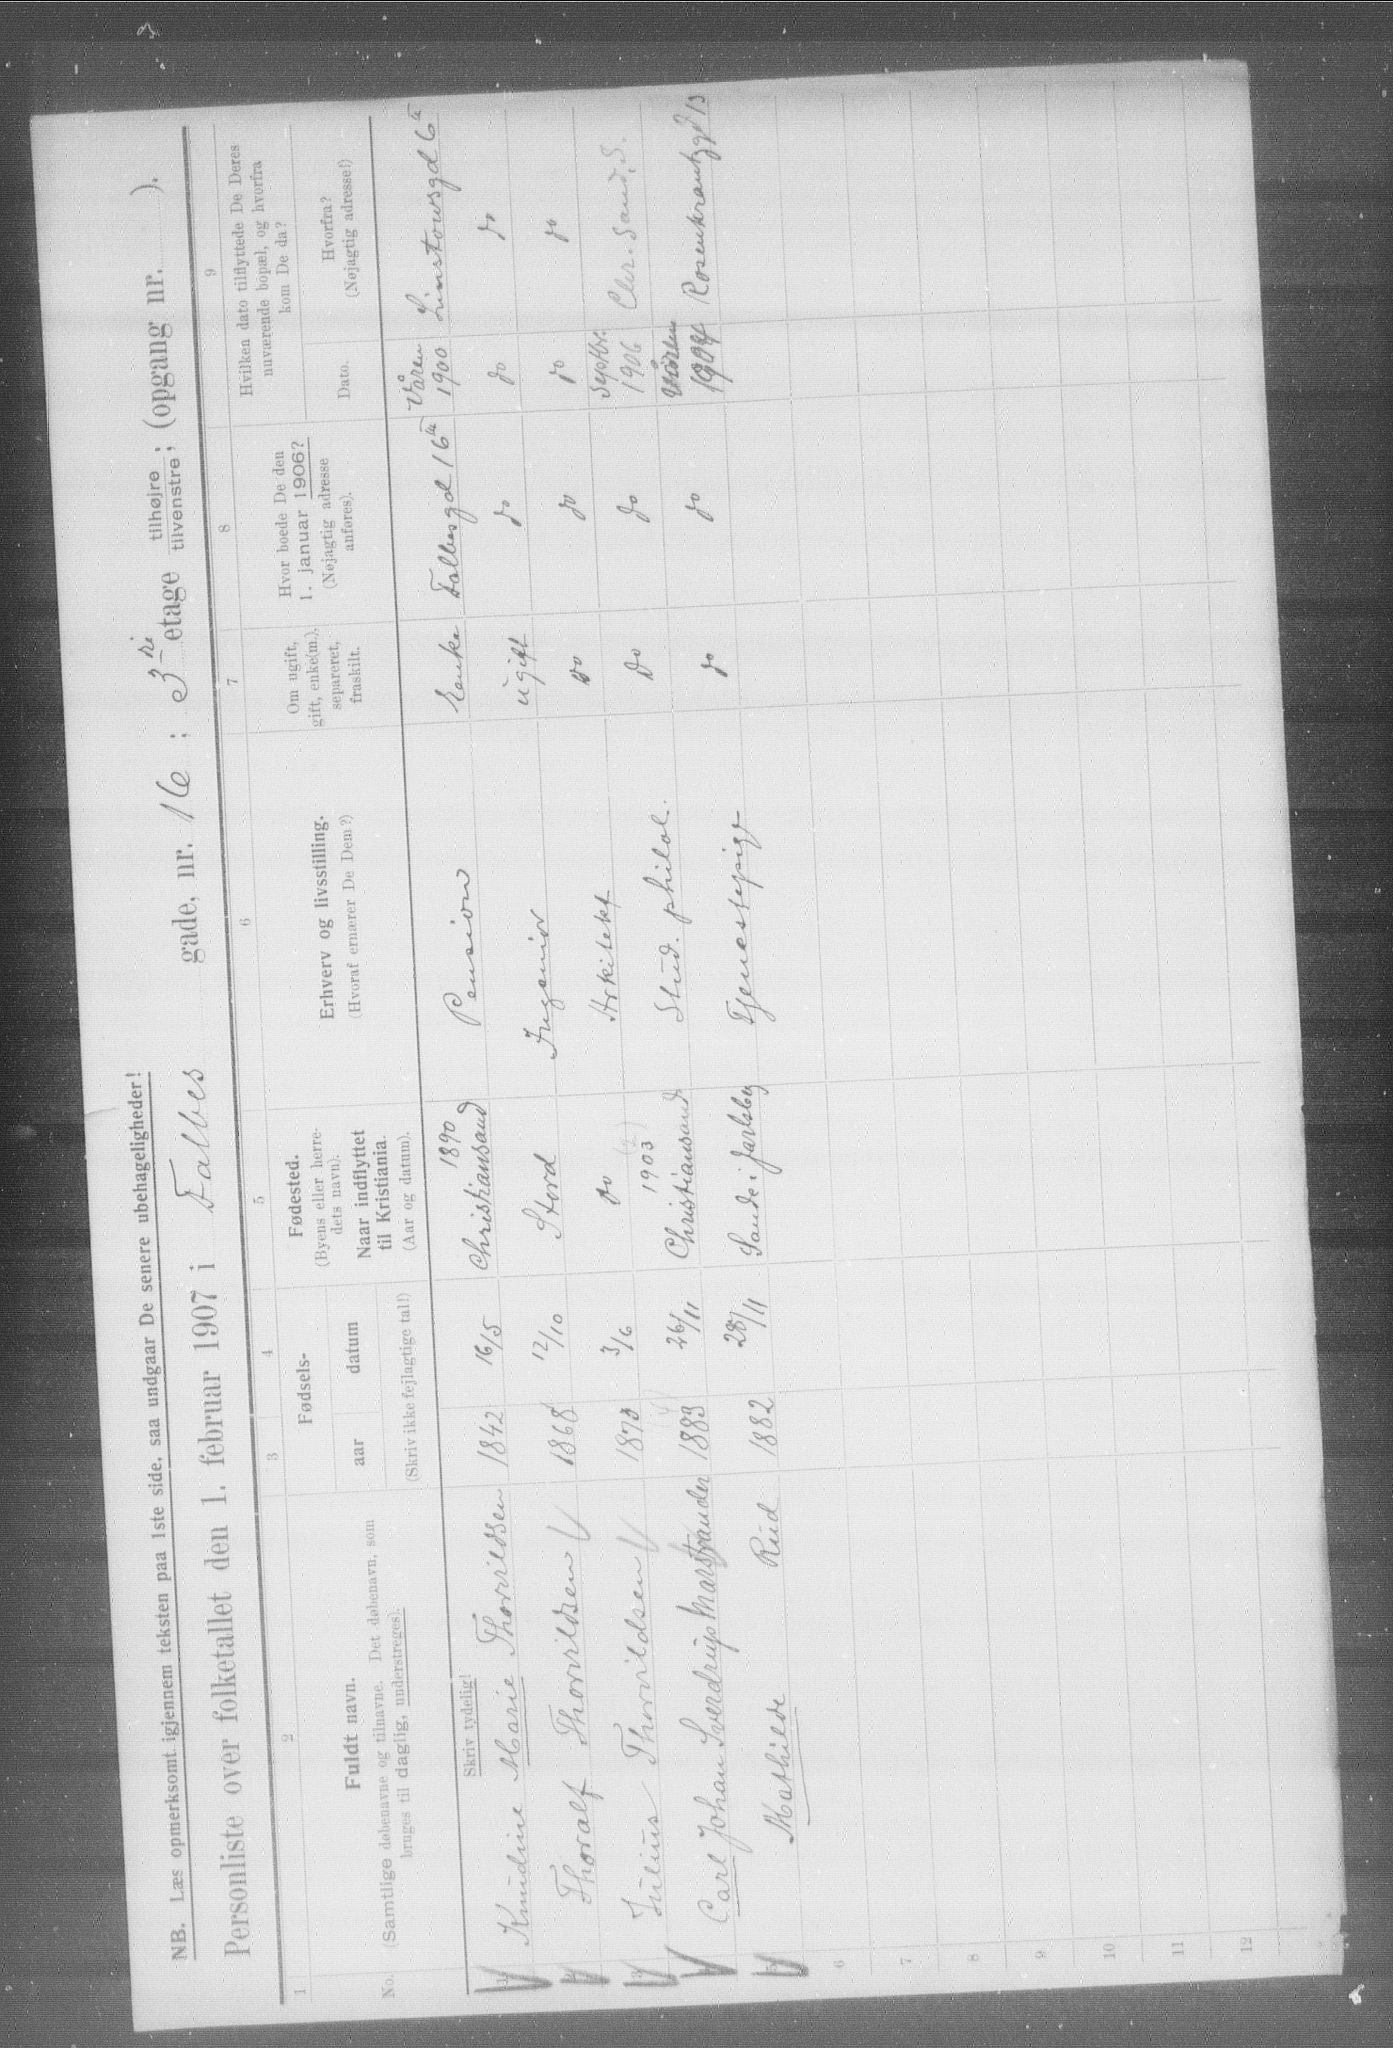 NB. Læs opmerksomt igjennem teksten paa 1ste side, saa undgaar De senere ubehageligheder!
Personliste over folketallet den 1. februar 1907 i Falbes gade, nr. 16; 3di etage tilhøjre; tilvenstre; (opgang nr. ).
1 2 3 4 5 6 7 8 9
No.
Fuldt navn.
(Samtlige døbenavne og tilnavne. Det døbenavn, som
bruges til daglig, understreges).
Skriv tydelig!
Fødsels-
aar datum
(Skriv ikke fejlagtige tal!)
Fødested.
(Byens eller herre-
dets navn).
Naar indflyttet
til Kristiania.
(Aar og datum).
Erhverv og livsstilling.
(Hvoraf ernærer De Dem?)
Om ugift,
gift, enke(m.),
separeret,
fraskilt.
Hvor boede De den
1. januar 1906?
(Nøjagtig adresse
anføres).
Hvilken dato tilflyttede De Deres
nuværende bopæl, og hvorfra
kom De da?
Dato.
Hvorfra?
(Nøjagtig adresse!)
1 Knudine Marie Thorvildsen 1842 16/5 1890 Christiansand Pension Enke Falbesgd 16 Våren 1900 Linstowsgd 6
2 Thoralf Thorvildsen 1868 12/10 Stord Ingeniør ugift do do do
3 Julius Thorvildsen 187 3/6 do Arkitekt do do do do
4 Carl Johan Sverdrup Marstrander 1883 26/11 1903 Christiansand Stud. philol. Do do Septbr. 1906 Chr. Sand. S.
5 Mathilde Rud 1882 28/11 Sande i Jarlsberg Tjenestepige do do Våren 1904 Rosenkrantzgd 13
6
7
8
9
10
11
12